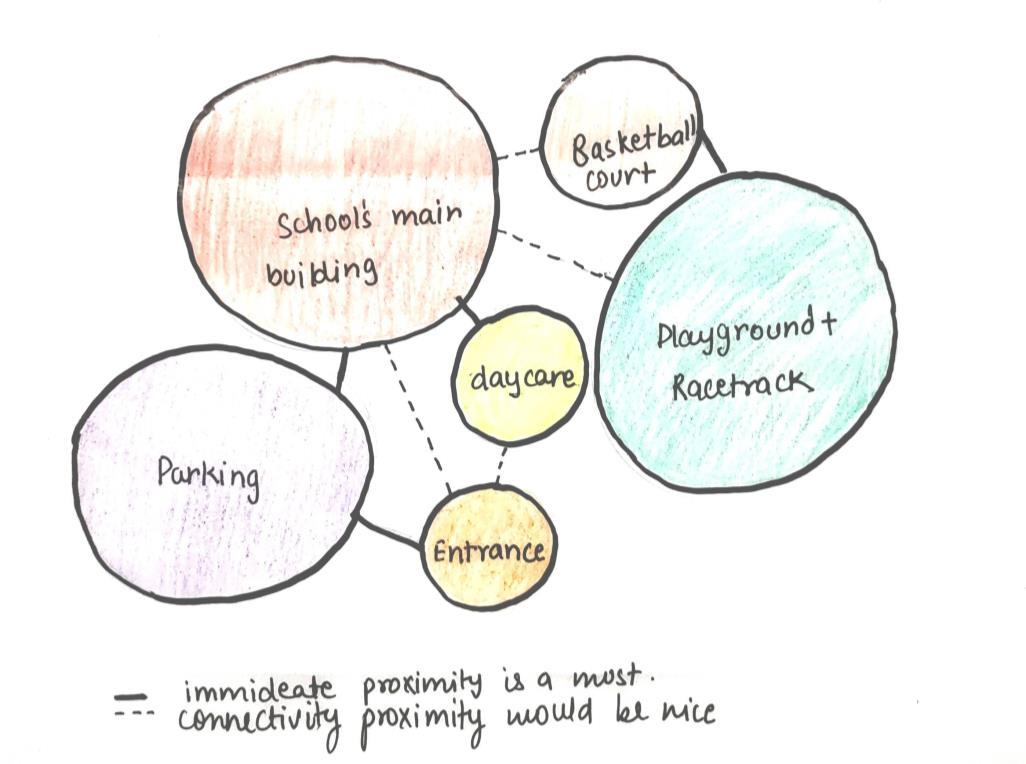 Basketball
court
School's main
building
Playground +
Racetrack
daycare
Parking
Entrance
immideate proximity is a most.
connectivity proximity would be nice